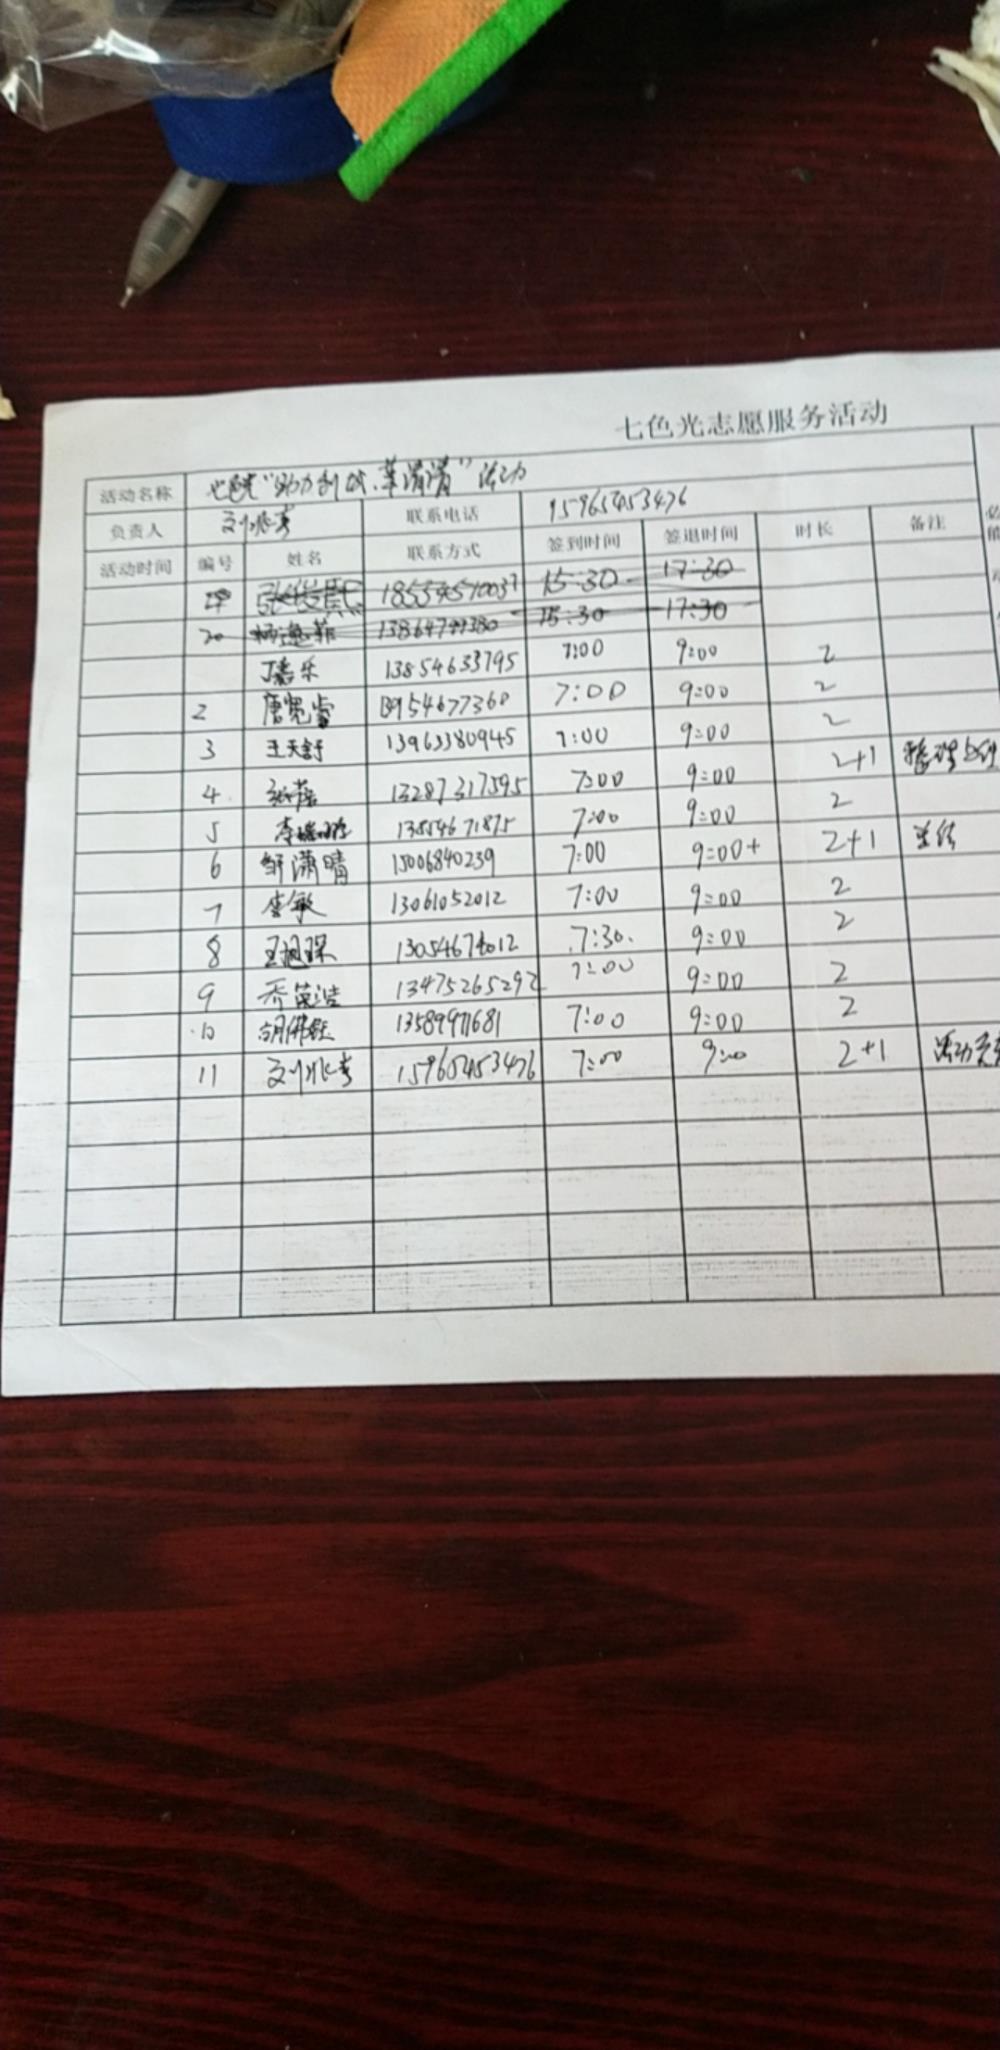 七色光志愿服务活动
活动名称 七色光“助力创城、革清清”活动
负责人 刘兆孝 联系电话 15965453476
活动时间 编号 姓名 联系方式 签到时间 签退时间 时长 备注
18554570037 15:30 17:30
20 13864799380 15:30 17:30
丁嘉乐 13854633795 7:00 9:00 2
2 唐宽睿 13954677368 7:00 9:00 2
3 王天舒 13963380945 7:00 9:00 2
4 张蓓 13287317595 7:00 9:00 2+1
5 13854671875 7:00 9:00 2
6 邹潇晴 15006840239 7:00 9:00+ 2+1 总结
7 李敏 13061052012 7:00 9:00 2
8 13054674012 7:30 9:00 2
9 乔英浩 13475265292 7:00 9:00 2
10 胡佛钰 13589971681 7:00 9:00 2
11 刘兆孝 15965453476 7:00 9:00 2+1 活动负责